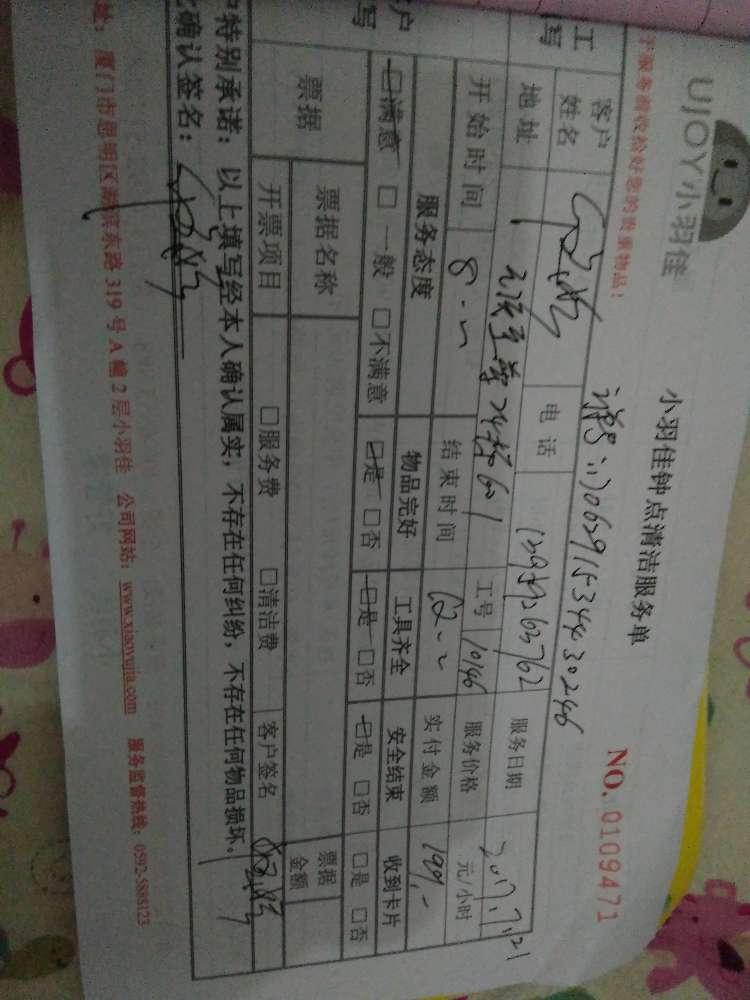 UJOY小羽佳
小羽佳钟点清洁服务单
NO. 0109471
服务前收拾好您的贵重物品!
1706291534430246
客户姓名
电话
服务日期 2017.7.21
地址
601
工号 10146
服务价格 元/小时
开始时间 8
结束时间
实付金额 199.-
服务态度 物品完好 工具齐全 安全结束 收到卡片
☑满意 □一般 □不满意 ☑是 □否 ☑是 □否 ☑是 □否 □是 □否
票据 票据名称 票据金额
开票项目 □服务费 □清洁费 客户签名
特别承诺:以上填写经本人确认属实,不存在任何纠纷,不存在任何物品损坏。
确认签名:
址:厦门市思明区湖滨东路 319 号 A 幢 2 层小羽佳 公司网站:www.xiaoyujia.com 服务监督热线:0592-5888123